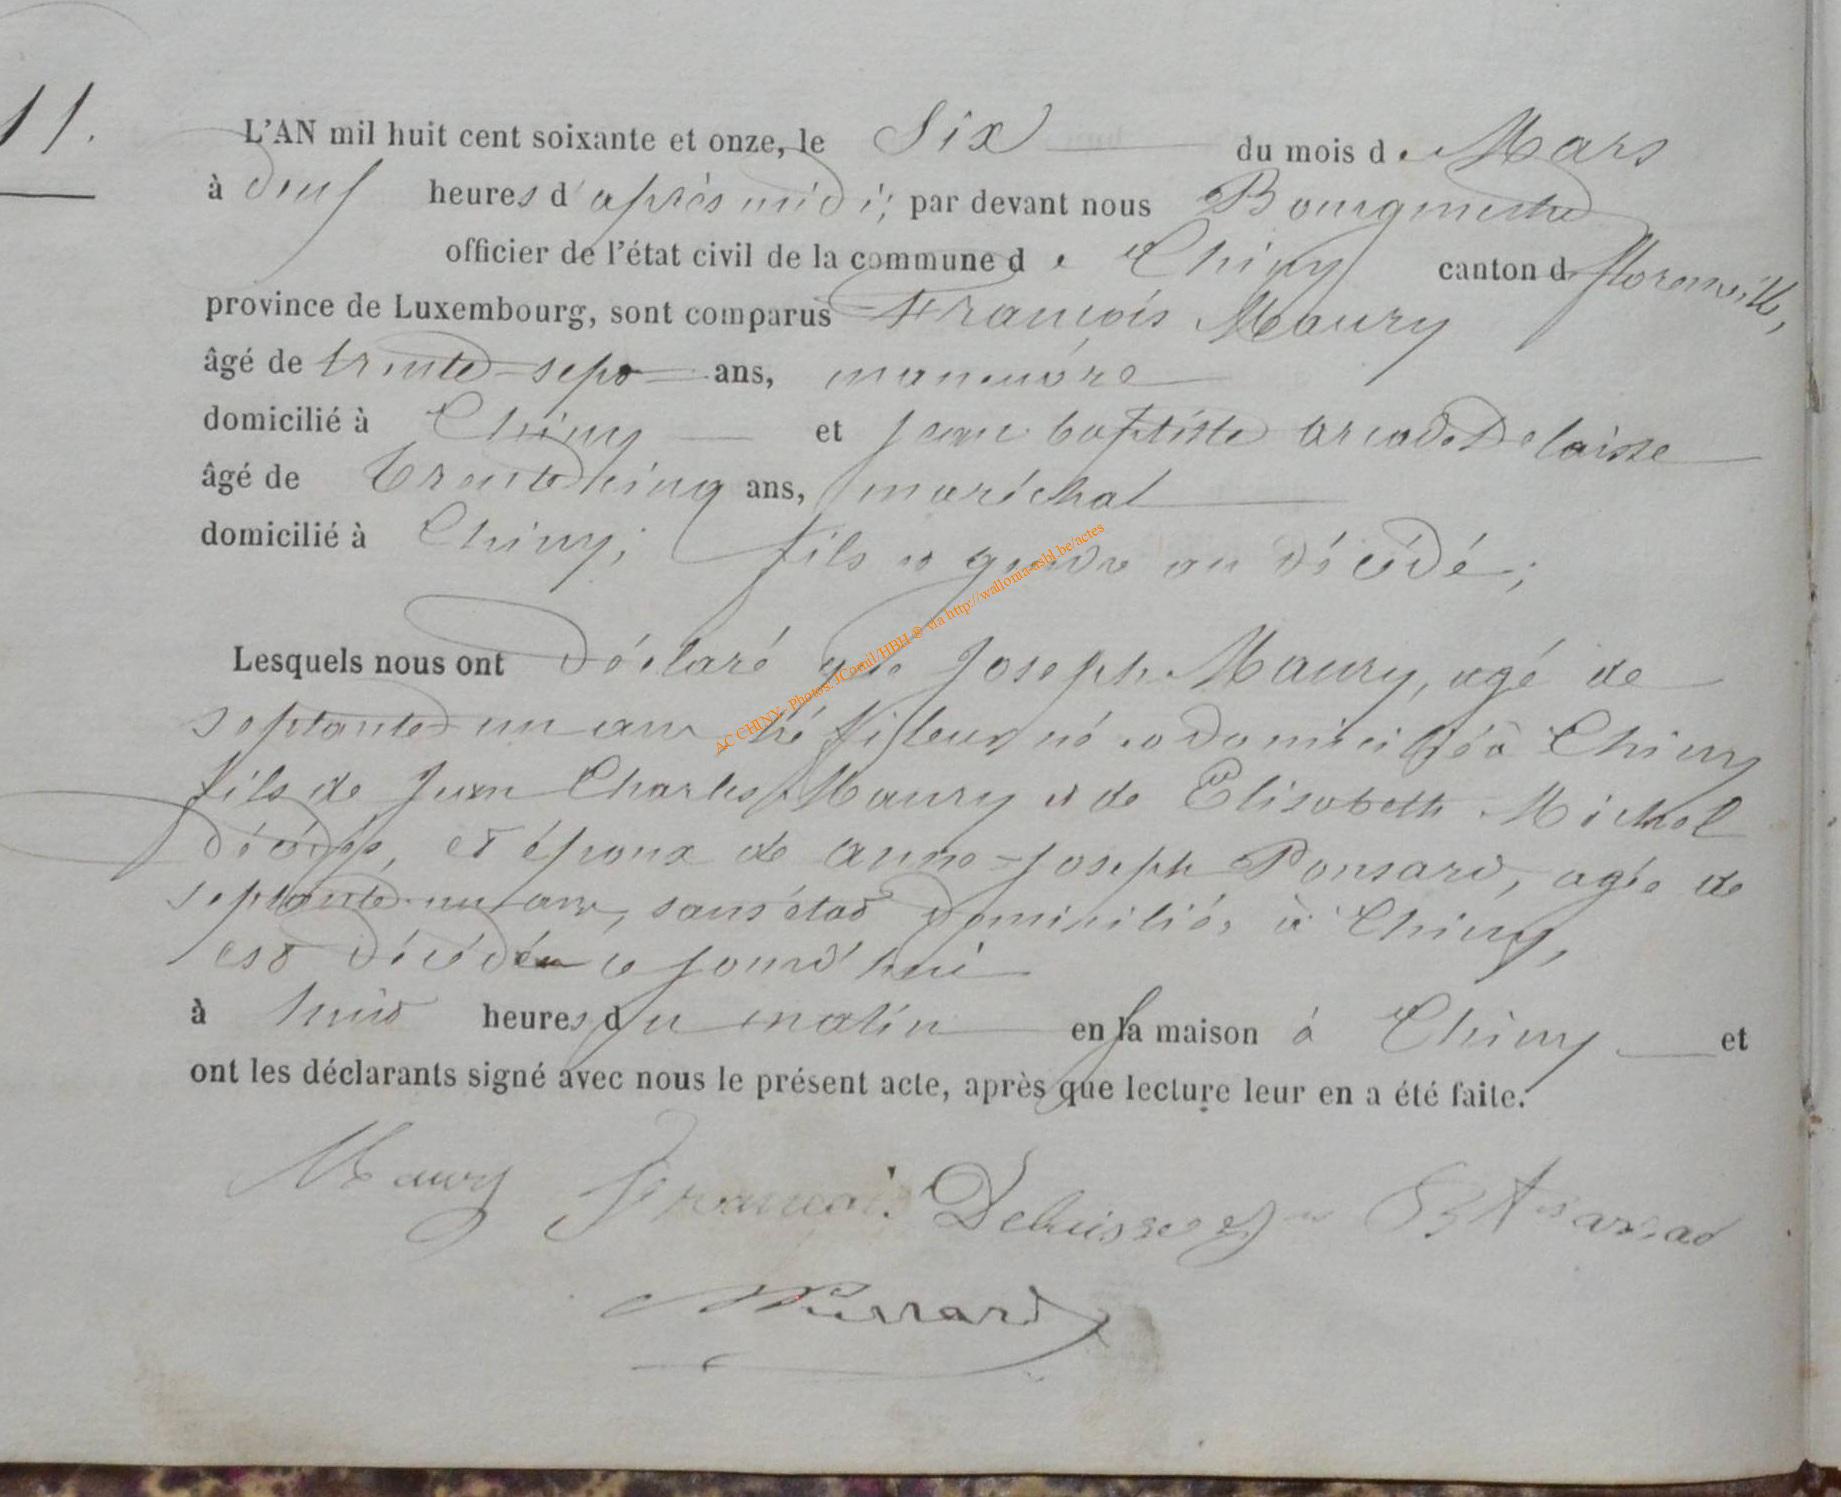 11.
L'AN mil huit cent soixante et onze, le Six du mois de Mars
à deux heures d'après midi; par devant nous Bourgmestre
officier de l'état civil de la commune de Chiny canton de Florenville,
province de Luxembourg, sont comparus François Maury
âgé de trente-sept ans, manœuvre
domicilié à Chiny et Jean baptiste Delaisse
âgé de trente cinq ans, maréchal
domicilié à Chiny; fils et gendre au décédé;
Lesquels nous ont déclaré que Joseph Maury, agé de
septante un ans né et domicilié à Chiny
fils de Jean Charles Maury et de Elisabeth Michel
décédés, et époux de anne-Joseph Ponsard, agée de
septante un ans, sans état domiciliée à Chiny,
est décédé ce jourd'hui
à huit heures du matin en sa maison à Chiny et
ont les déclarants signé avec nous le présent acte, après que lecture leur en a été faite.
Maury François Delaisse
AC CHINY- Photos: JComil/HBH @ via http://walloma-asbl.be/actes